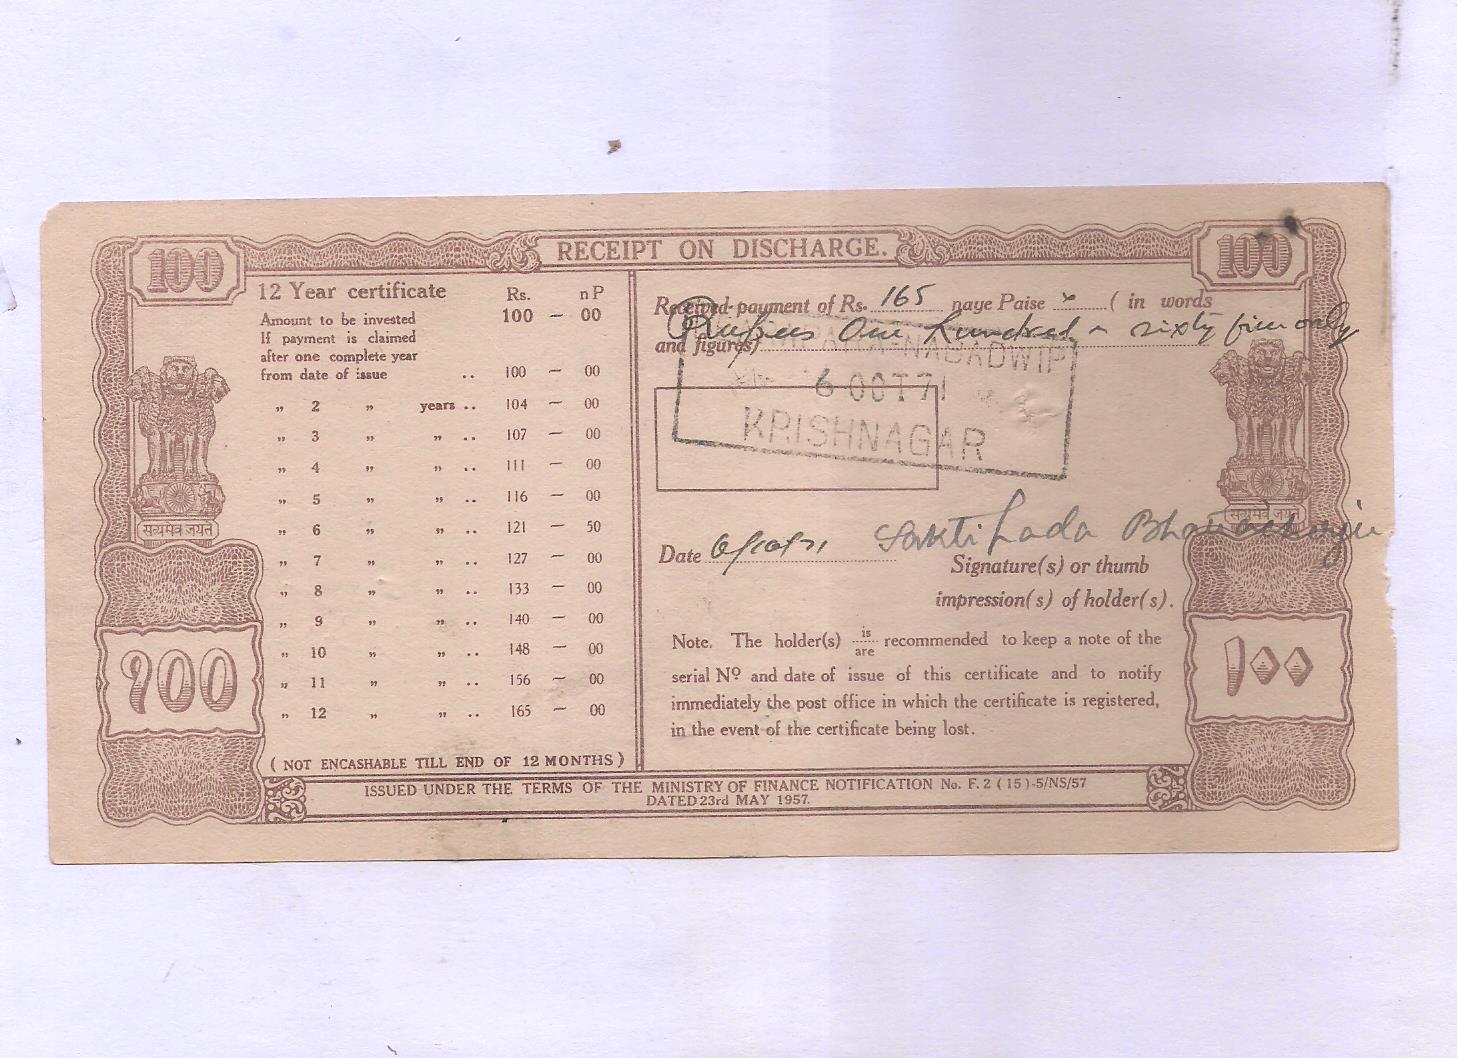 RECEIPT ON DISCHARGE.
100
100
12 Year certificate Rs. nP
Amount to be invested 100 — 00
If payment is claimed
after one complete year
from date of issue .. 100 — 00
„ 2 „ years .. 104 — 00
„ 3 „ „ .. 107 — 00
„ 4 „ „ .. 111 — 00
„ 5 „ „ .. 116 — 00
„ 6 „ „ .. 121 — 50
„ 7 „ „ .. 127 — 00
„ 8 „ „ .. 133 — 00
„ 9 „ „ .. 140 — 00
„ 10 „ „ .. 148 — 00
„ 11 „ „ .. 156 — 00
„ 12 „ „ .. 165 — 00
( NOT ENCASHABLE TILL END OF 12 MONTHS )
सत्यमेव जयते
१००
Received payment of Rs. 165 naye Paise × ( in words
Rupees One hundred sixty five only
and figures)
NABADWIP
6 OCT 71
KRISHNAGAR
Date 6/10/71
Signature(s) or thumb
impression(s) of holder(s).
Note. The holder(s) is/are recommended to keep a note of the
serial Nº and date of issue of this certificate and to notify
immediately the post office in which the certificate is registered,
in the event of the certificate being lost.
सत्यमेव जयते
۱۰۰
ISSUED UNDER THE TERMS OF THE MINISTRY OF FINANCE NOTIFICATION No. F. 2 ( 15 )-5/NS/57
DATED 23rd MAY 1957.